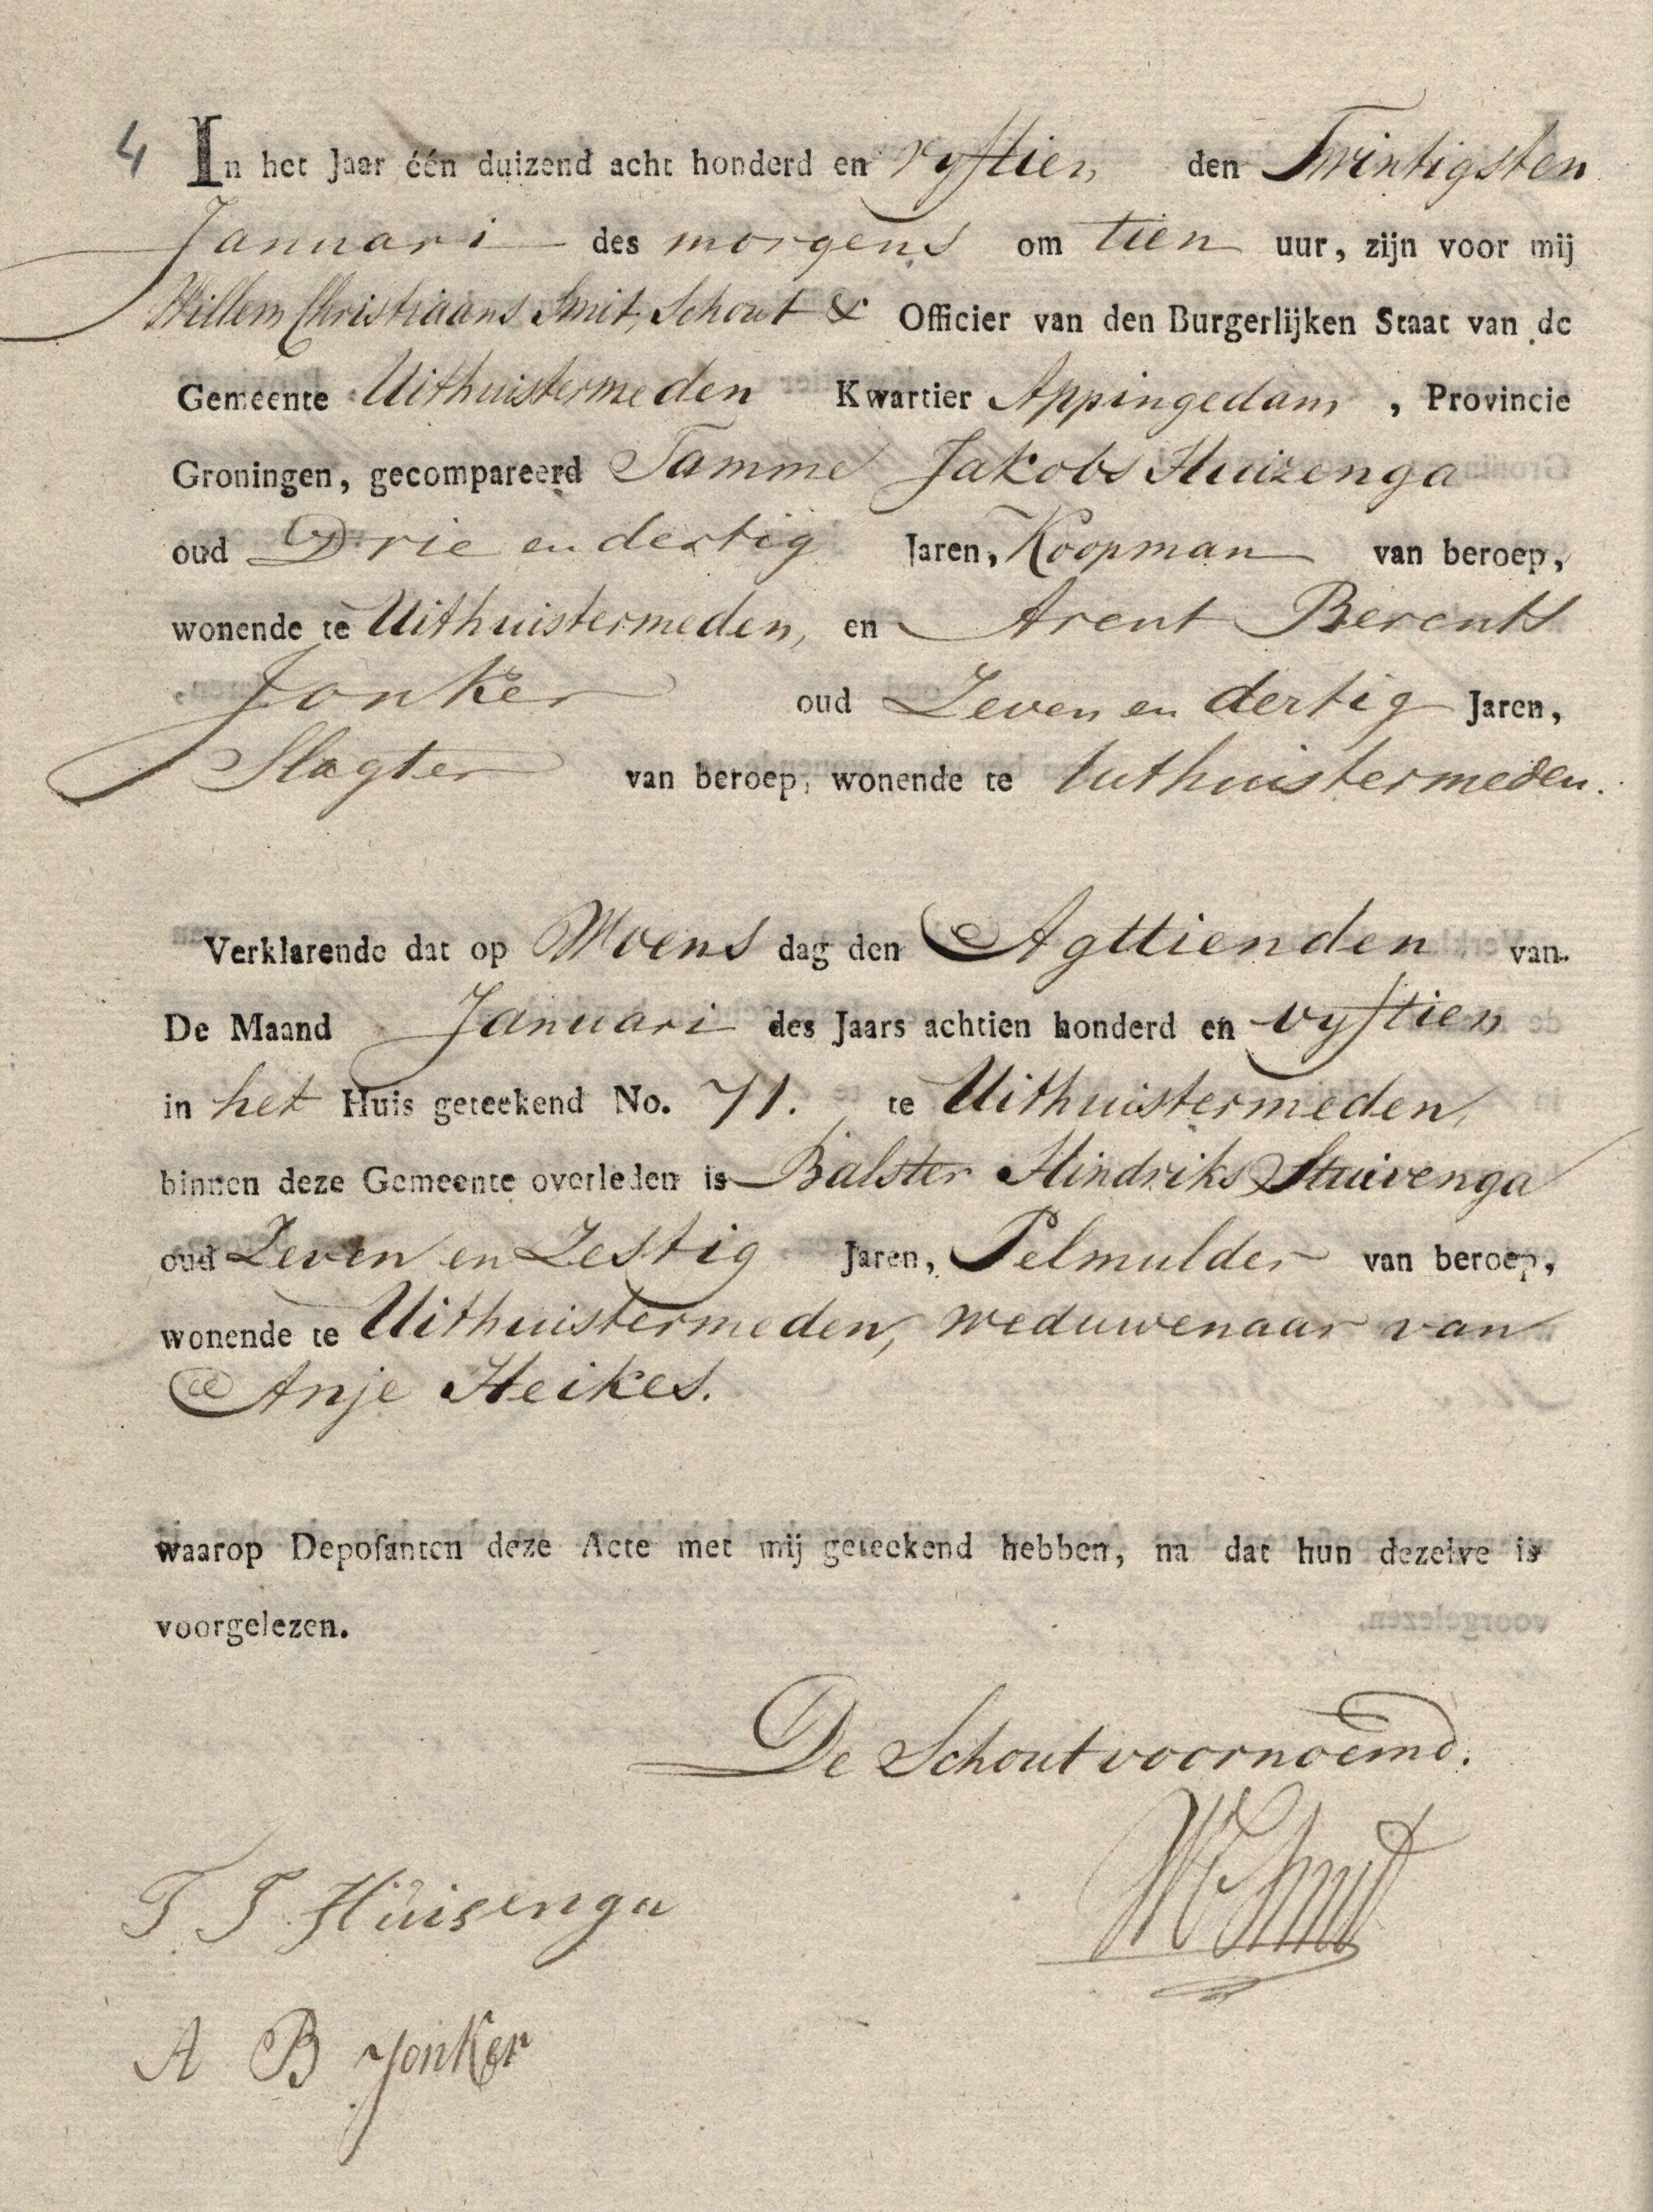 4 In het Jaar één duizend acht honderd en vyftien den Twintigsten
Januari des morgens om tien uur, zijn voor mij
Willem Christiaans Smit, Schout & Officier van den Burgerlijken Staat van de
Gemeente Uithuistermeden Kwartier Appingedam, Provincie
Groningen, gecompareerd Tamme Jakobs Huizenga
oud Drie en dertig Jaren, Koopman van beroep,
wonende te Uithuistermeden, en Arent Berents
Jonker oud Zeven en dertig Jaren,
Slagter van beroep, wonende te Uithuistermeden.
Verklarende dat op Woens dag den Agttienden van
De Maand Januari des Jaars achtien honderd en vyftien
in het Huis geteekend No. 71. te Uithuistermeden,
binnen deze Gemeente overleden is Balster Hindriks Stuivenga
oud Zeven en Zestig Jaren, Pelmulder van beroep,
wonende te Uithuistermeden, weduwenaar van
Anje Heikes.
waarop Deposanten deze Acte met mij geteekend hebben, na dat hun dezelve is
voorgelezen.
De Schout voornoemd.
WC Smit
T J Huisenga
A B Jonker